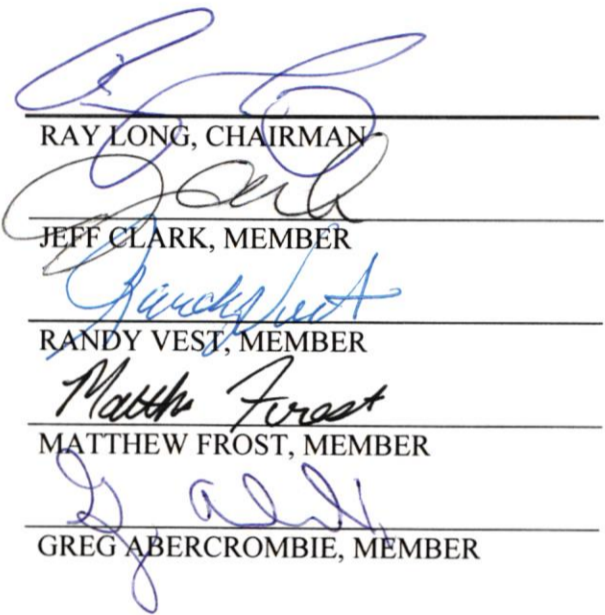 RAY LONG, CHAIRMAN
JEFF CLARK, MEMBER
Randy Vest
RANDY VEST, MEMBER
Matthew Frost
MATTHEW FROST, MEMBER
GREG ABERCROMBIE, MEMBER